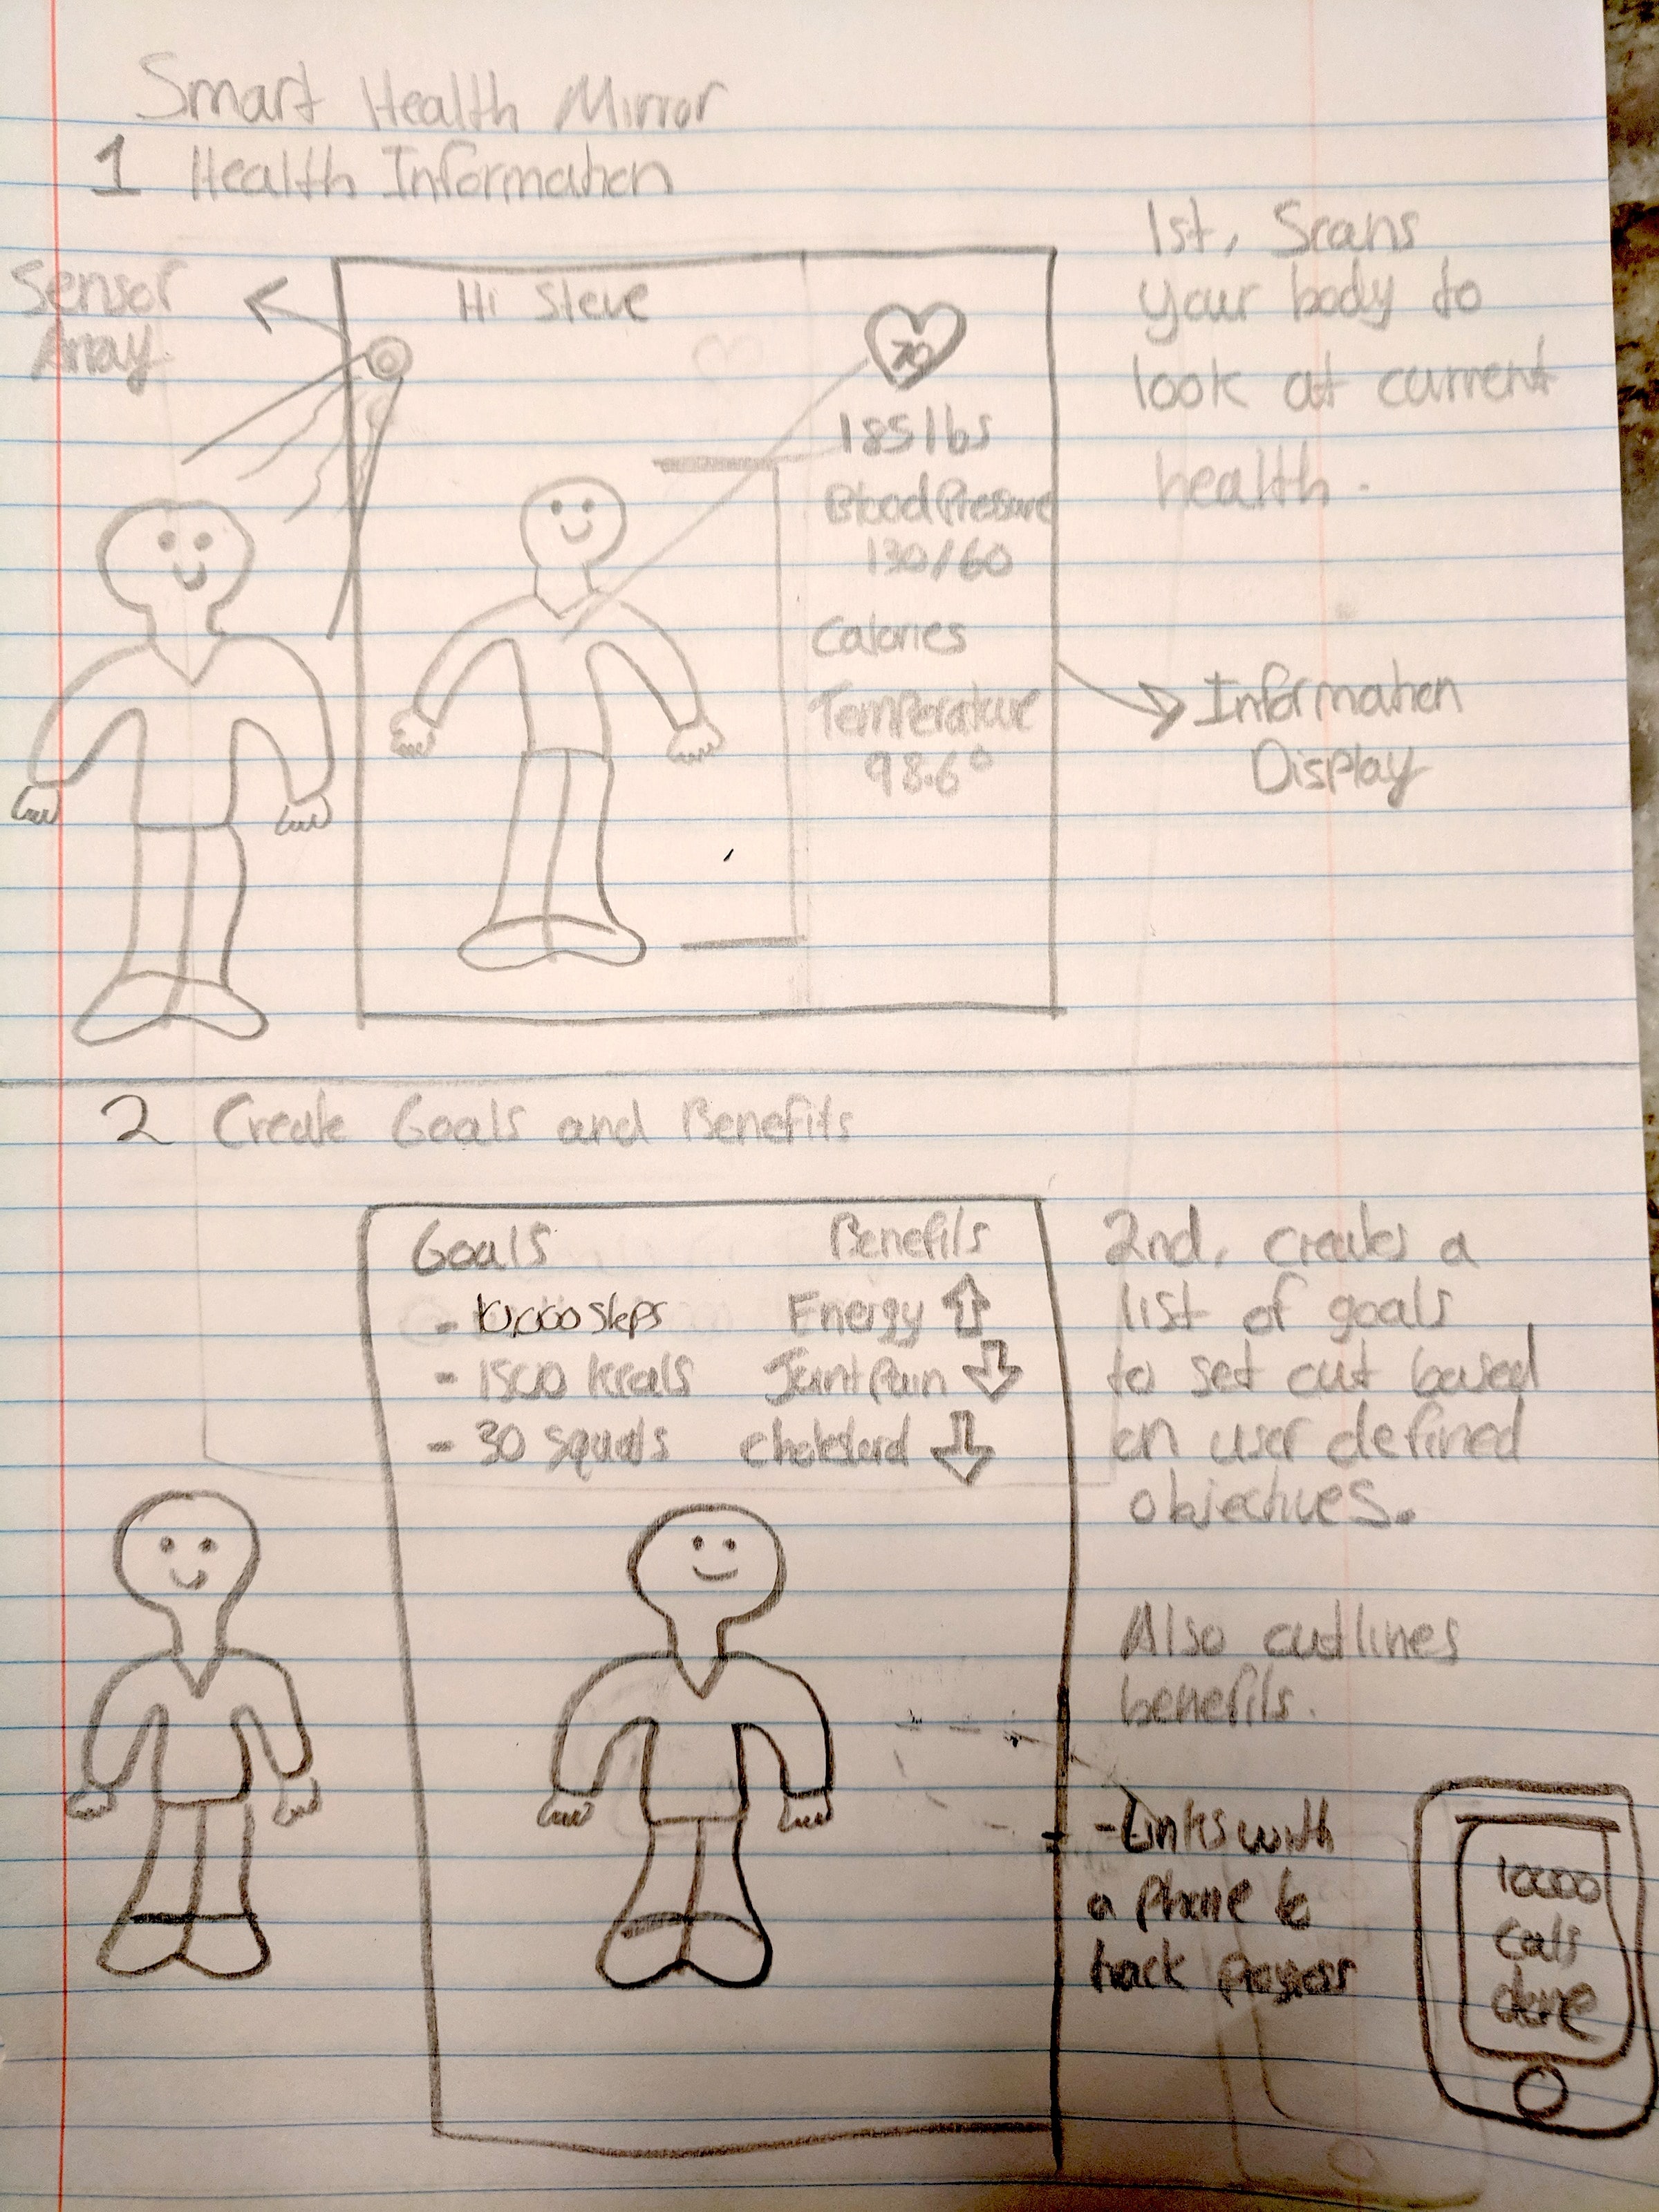 Smart Health Mirror
1 Health Information
Sensor
Array
Hi Steve
70
185 lbs
Blood Pressure
130/60
Calories
Temperature
98.6°
1st, Scans
your body to
look at current
health.
Information
Display
2 Create Goals and Benefits
Goals
- 10,000 steps
- 1500 kcals
- 30 squats
Benefits
Energy
Joint Pain
2nd, creates a
list of goals
to set out based
on user defined
objectives.
Also outlines
benefits.
- Links with
a phone to
track progress
10000
Cals
done